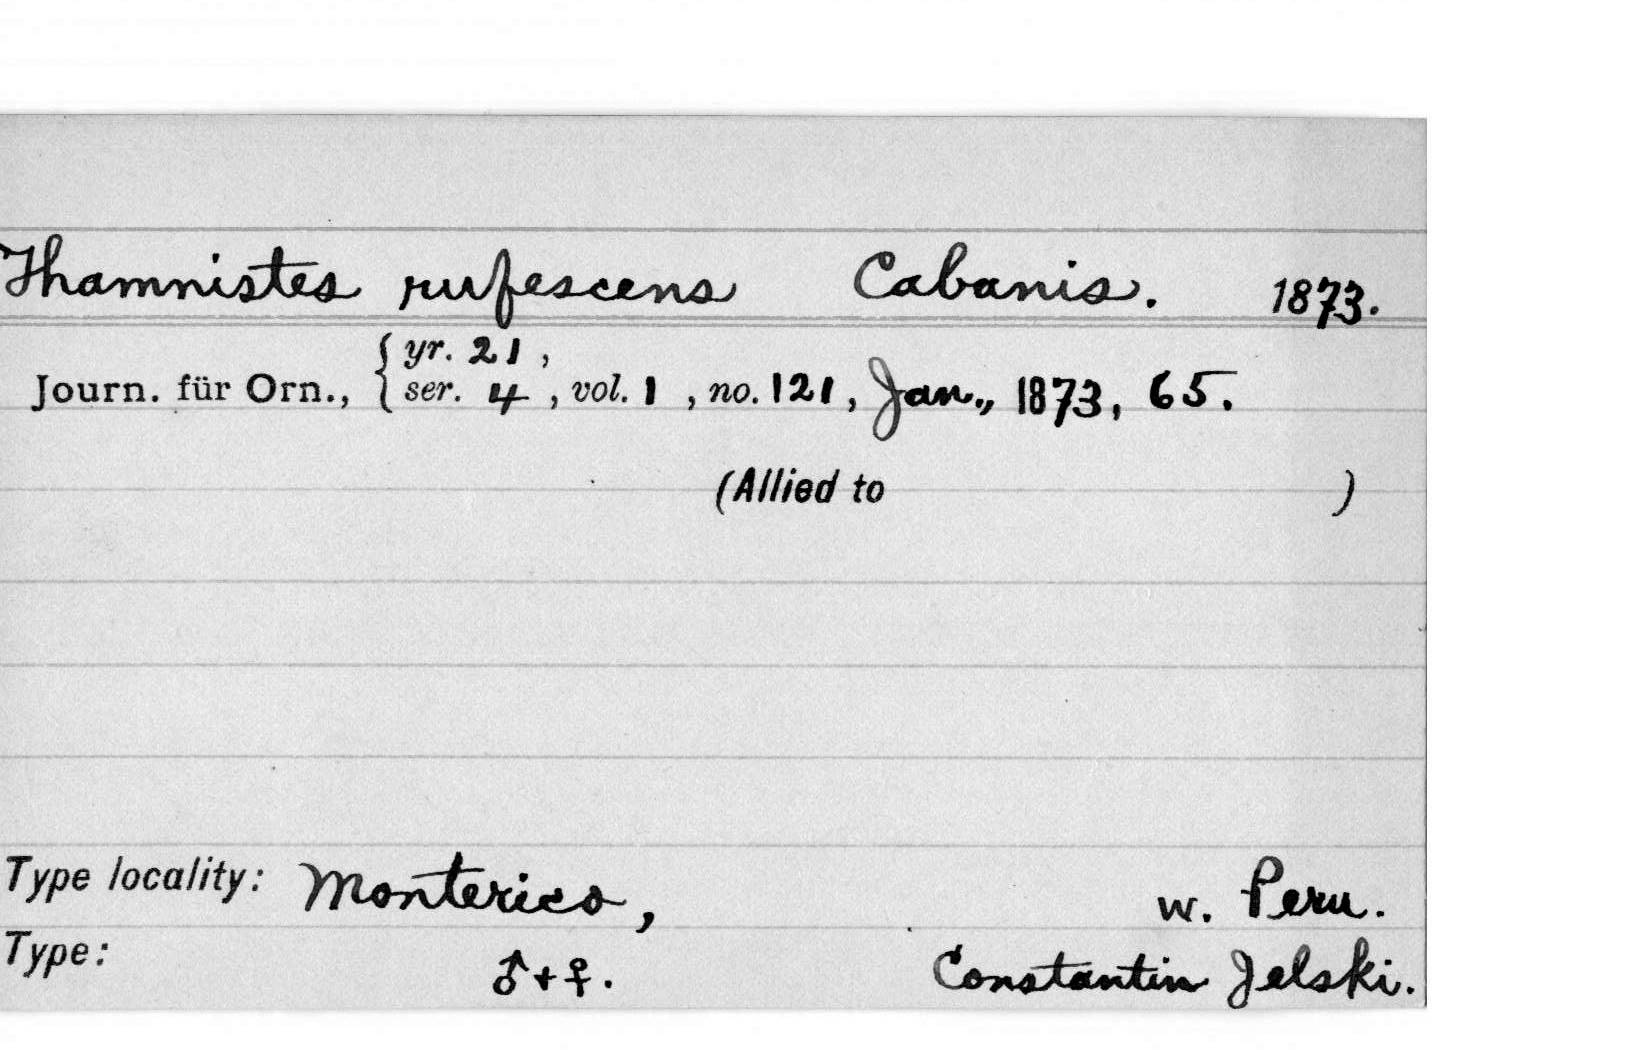 Thamnistes rufescens Cabanis. 1873.
Journ. für Orn., { yr. 21 ,
ser. 4 , vol. 1 , no. 121, Jan., 1873, 65.
(Allied to )
Type locality: Monterico, w. Peru.
Type: ♂+♀. Constantin Jelski.